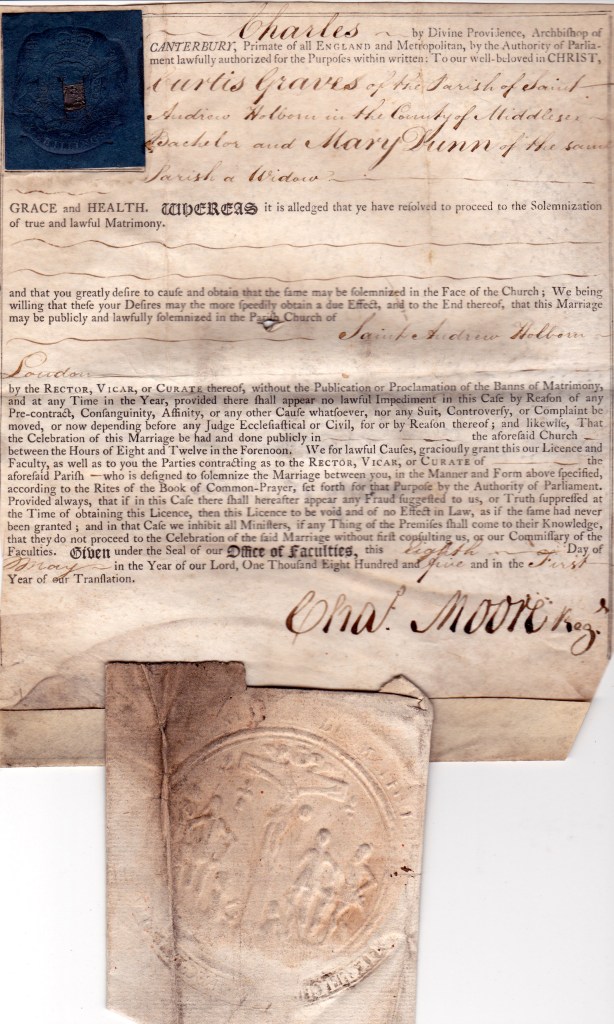 Charles by Divine Providence, Archbiſhop of
CANTERBURY, Primate of all ENGLAND and Metropolitan, by the Authority of Parlia-
ment lawfully authorized for the Purpoſes within written: To our well-beloved in CHRIST,
Curtis Graves of the Parish of Saint
Andrew Holborn in the County of Middlesex
Bachelor and Mary Dunn of the same
Parish a Widow
GRACE and HEALTH. WHEREAS it is alledged that ye have reſolved to proceed to the Solemnization
of true and lawful Matrimony.
and that you greatly deſire to cauſe and obtain that the ſame may be ſolemnized in the Face of the Church; We being
willing that theſe your Deſires may the more ſpeedily obtain a due Effect, and to the End thereof, that this Marriage
may be publicly and lawfully ſolemnized in the Pariſh Church of
Saint Andrew Holborn
London
by the RECTOR, VICAR, or CURATE thereof, without the Publication or Proclamation of the Banns of Matrimony,
and at any Time in the Year, provided there ſhall appear no lawful Impediment in this Caſe by Reaſon of any
Pre-contract, Conſanguinity, Affinity, or any other Cauſe whatſoever, nor any Suit, Controverſy, or Complaint be
moved, or now depending before any Judge Eccleſiaſtical or Civil, for or by Reaſon thereof; and likewiſe, That
the Celebration of this Marriage be had and done publicly in the aforeſaid Church
between the Hours of Eight and Twelve in the Forenoon. We for lawful Cauſes, graciouſly grant this our Licence and
Faculty, as well to you the Parties contracting as to the RECTOR, VICAR, or CURATE of the
aforeſaid Pariſh who is deſigned to ſolemnize the Marriage between you, in the Manner and Form above ſpecified,
according to the Rites of the Book of Common-Prayer, ſet forth for that Purpoſe by the Authority of Parliament.
Provided always, that if in this Caſe there ſhall hereafter appear any Fraud ſuggeſted to us, or Truth ſuppreſſed at
the Time of obtaining this Licence, then this Licence to be void and of no Effect in Law, as if the ſame had never
been granted; and in that Caſe we inhibit all Miniſters, if any Thing of the Premiſes ſhall come to their Knowledge,
that they do not proceed to the Celebration of the ſaid Marriage without firſt conſulting us, or our Commiſſary of the
Faculties. Given under the Seal of our Office of Faculties, this eighth Day of
May in the Year of our Lord, One Thouſand Eight Hundred and five and in the First
Year of our Tranſlation.
Chas. Moore Regr.